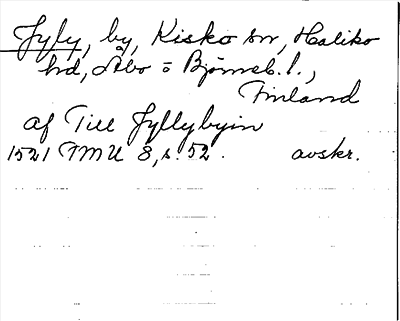 Jyly, by, Kisko sn, Haliko
hd, Åbo o Björneb. l.,
Finland
af Till Jyllybyin
1521 FMU 8, s. 52. avskr.